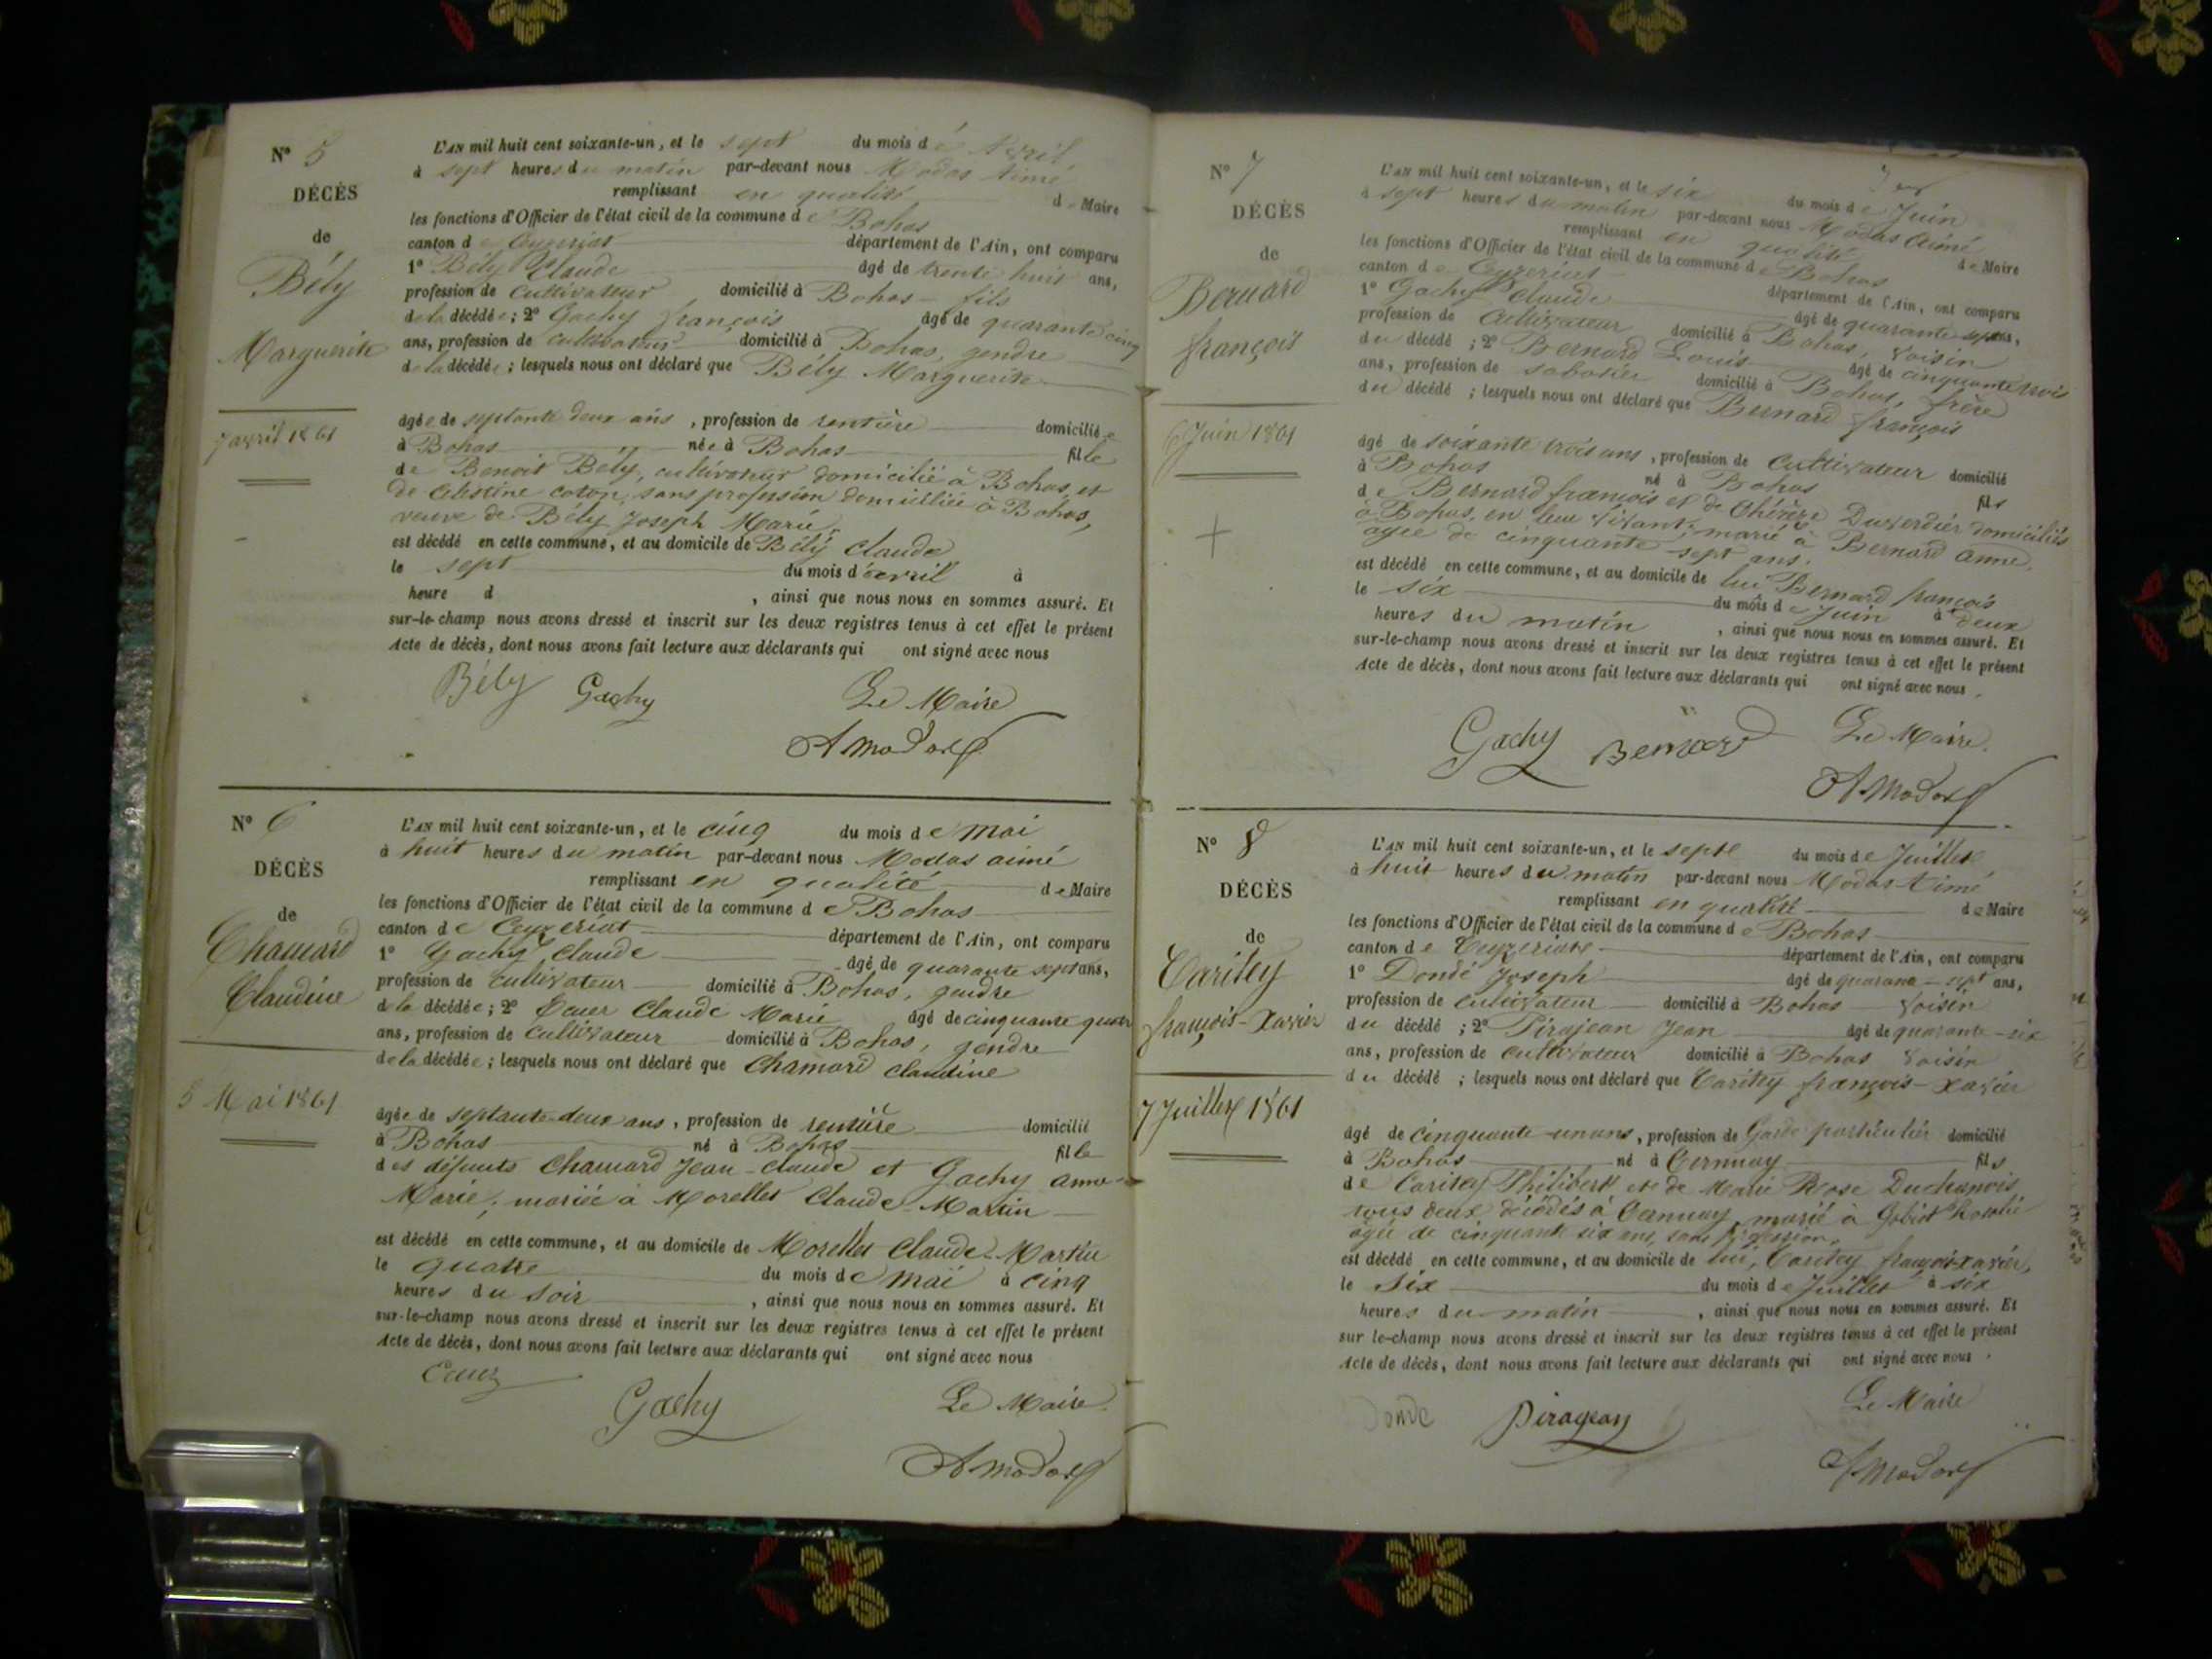 N° 5
DÉCÈS
de
Bély
Marguerite
7 avril 1861
L'AN mil huit cent soixante-un, et le sept du mois d'avril
à sept heures du matin par-devant nous Modas Aimé
remplissant en qualité de Maire
les fonctions d'Officier de l'état civil de la commune de Bohas
canton de Ceyzeriat département de l'Ain, ont comparu
1° Bély Claude âgé de trente huit ans,
profession de cultivateur domicilié à Bohas fils
de la décédée; 2° Gachy françois âgé de quarante cinq
ans, profession de cultivateur domicilié à Bohas, gendre
de la décédée; lesquels nous ont déclaré que Bély Marguerite
âgée de septante deux ans, profession de rentière domiciliée
à Bohas née à Bohas fille
de Benoit Bély, cultivateur domicilié à Bohas et
de Célestine coton, sans profession domiciliée à Bohas,
veuve de Bély Joseph Marie,
est décédé en cette commune, et au domicile de Bély Claude
le sept du mois d'avril à
heure d , ainsi que nous nous en sommes assuré. Et
sur-le-champ nous avons dressé et inscrit sur les deux registres tenus à cet effet le présent
Acte de décès, dont nous avons fait lecture aux déclarants qui ont signé avec nous
Bély Gachy Le Maire
A Modas
N° 6
DÉCÈS
de
Chamard
Claudine
5 Mai 1861
L'AN mil huit cent soixante-un, et le cinq du mois de mai
à huit heures du matin par-devant nous Modas aimé
remplissant en qualité de Maire
les fonctions d'Officier de l'état civil de la commune de Bohas
canton de Ceyzeriat département de l'Ain, ont comparu
1° Gachy Claude âgé de quarante sept ans,
profession de cultivateur domicilié à Bohas, gendre
de la décédée; 2° Ecuer Claude Marie âgé de cinquante quatre
ans, profession de cultivateur domicilié à Bohas, gendre
de la décédée; lesquels nous ont déclaré que Chamard Claudine
âgée de septante-deux ans, profession de rentière domicilié
à Bohas né à Bohas fille
des défunts Chamard Jean-Claude et Gachy anne-
Marie; mariée à Morellet Claude-Martin
est décédé en cette commune, et au domicile de Morellet Claude-Martin
le quatre du mois de mai à cinq
heures du soir, ainsi que nous nous en sommes assuré. Et
sur-le-champ nous avons dressé et inscrit sur les deux registres tenus à cet effet le présent
Acte de décès, dont nous avons fait lecture aux déclarants qui ont signé avec nous
Ecuer
Gachy Le Maire
A Modas
N° 7
DÉCÈS
de
Bernard
françois
6 Juin 1861
L'AN mil huit cent soixante-un, et le six du mois de Juin
à sept heures du matin par-devant nous Modas Aimé
remplissant en qualité de Maire
les fonctions d'Officier de l'état civil de la commune de Bohas
canton de Ceyzeriat département de l'Ain, ont comparu
1° Gachy Claude âgé de quarante sept ans,
profession de Cultivateur domicilié à Bohas, voisin
du décédé; 2° Bernard Louis âgé de cinquante trois
ans, profession de sabotier domicilié à Bohas, frère
du décédé; lesquels nous ont déclaré que Bernard françois
âgé de soixante trois ans, profession de Cultivateur domicilié
à Bohas né à Bohas fils
de Bernard françois et de Thérèse Duverdier domiciliés
à Bohas, en leur vivant; marié à Bernard anne,
agée de cinquante sept ans.
est décédé en cette commune, et au domicile de lui Bernard françois
le six du mois de Juin à deux
heures du matin, ainsi que nous nous en sommes assuré. Et
sur-le-champ nous avons dressé et inscrit sur les deux registres tenus à cet effet le présent
Acte de décès, dont nous avons fait lecture aux déclarants qui ont signé avec nous.
Gachy Bernard Le Maire.
A Modas
N° 8
DÉCÈS
de
Caritey
françois-Xavier
7 Juillet 1861
L'AN mil huit cent soixante-un, et le sept du mois de Juillet
à huit heures du matin par-devant nous Modas Aimé
remplissant en qualité de Maire
les fonctions d'Officier de l'état civil de la commune de Bohas
canton de Ceyzeriat département de l'Ain, ont comparu
1° Dondé Joseph âgé de quarante-sept ans,
profession de cultivateur domicilié à Bohas voisin
du décédé; 2° Pirajean Jean âgé de quarante-six
ans, profession de cultivateur domicilié à Bohas voisin
du décédé; lesquels nous ont déclaré que Caritey françois-xavier
âgé de cinquante-un ans, profession de Garde particulier domicilié
à Bohas né à Cernnay fils
de Caritey Philibert et de Marie Rose Duchanois
tous deux décédés à Cernnay marié à
agée de cinquante six ans, sans profession,
est décédé en cette commune, et au domicile de lui, Caritey françois-xavier,
le six du mois de Juillet à six
heures du matin, ainsi que nous nous en sommes assuré. Et
sur le-champ nous avons dressé et inscrit sur les deux registres tenus à cet effet le présent
Acte de décès, dont nous avons fait lecture aux déclarants qui ont signé avec nous.
Donde Pirajean Le Maire
A Modas